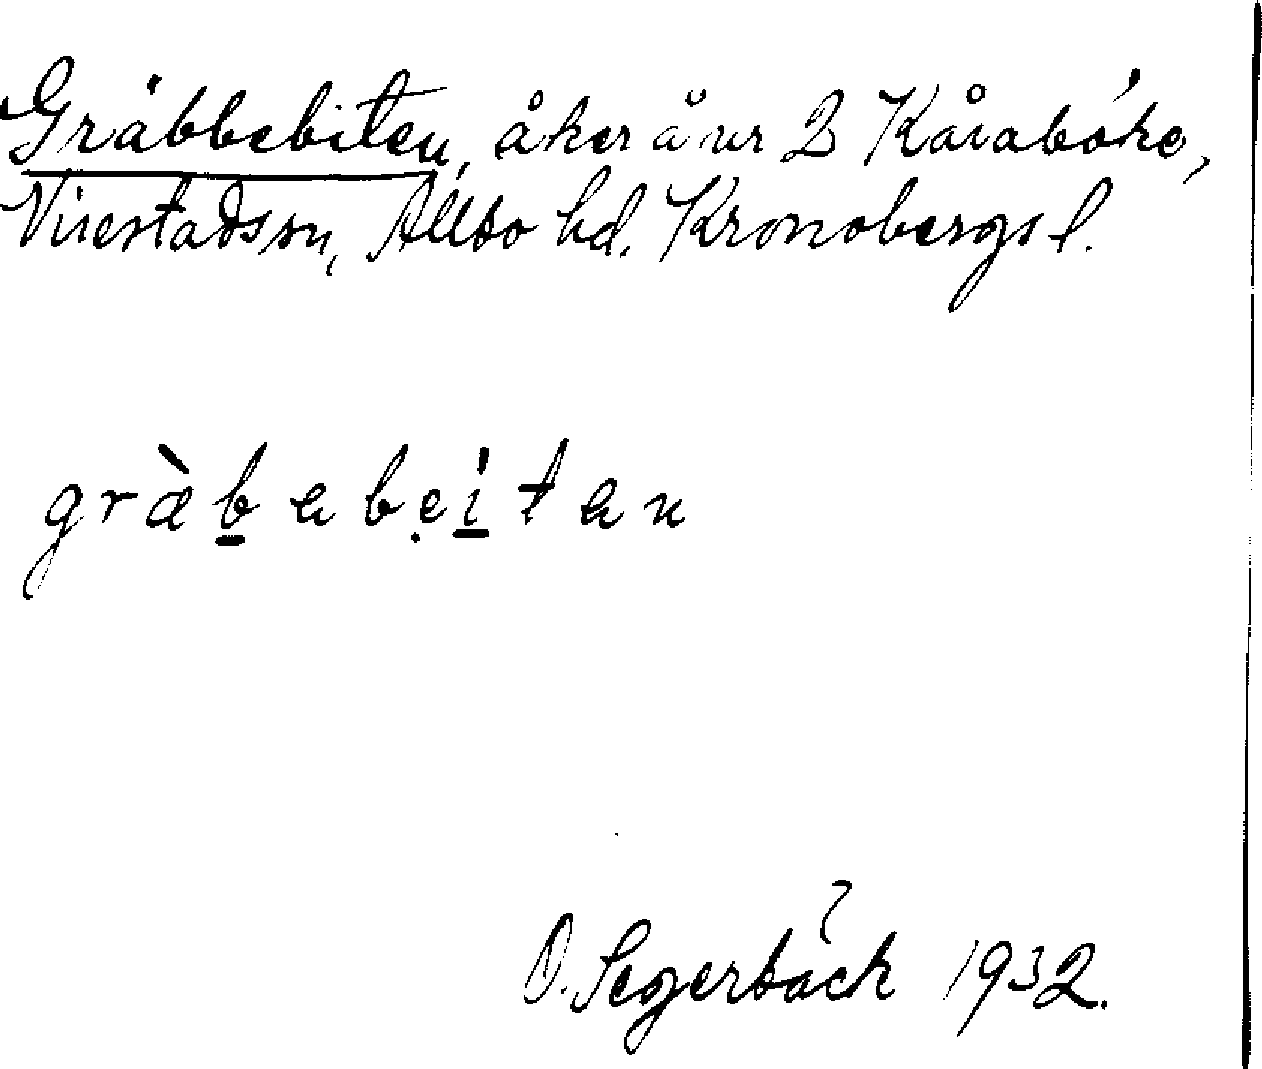 Gräbbebiten, åker å nr 2 Kåraböke,
Virestads sn, Allbo hd. Kronobergs l.
gràbebeítan
O. Segerbäck 1932.